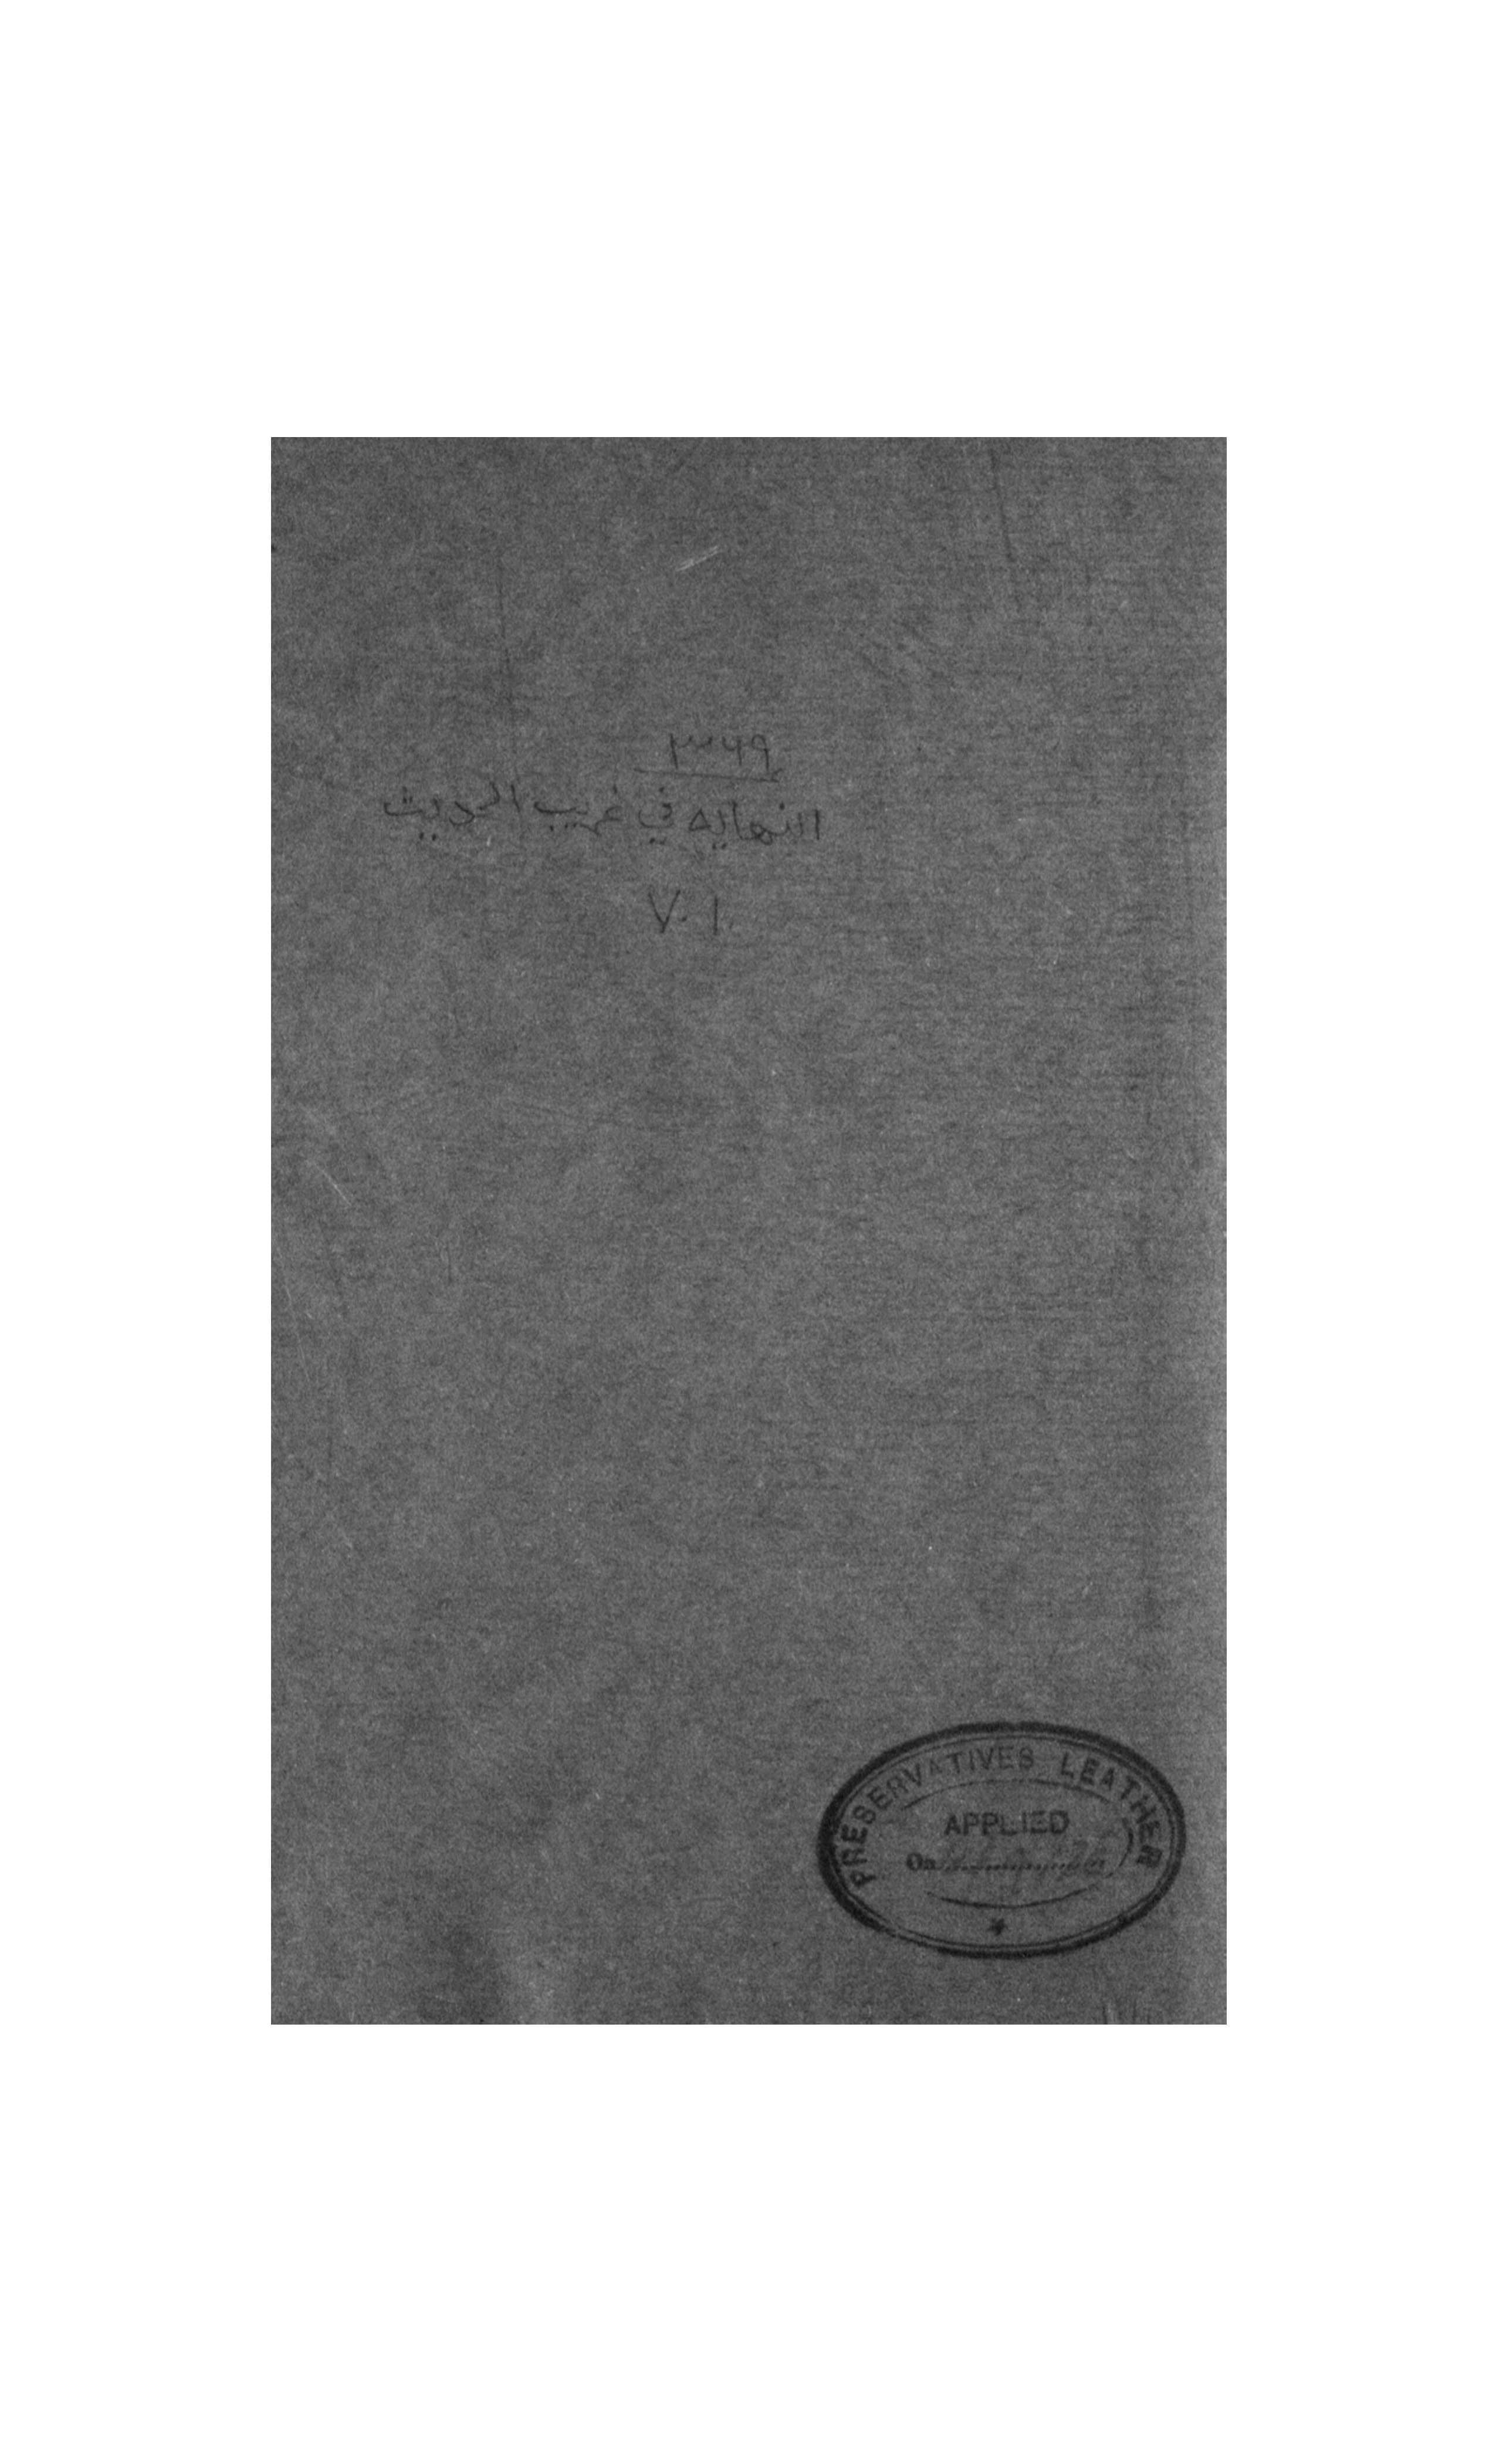 ٣٣٦٩
النهايه في غريب الحديث
٧٠١
PRESERVATIVES LEATHER
APPLIED
On